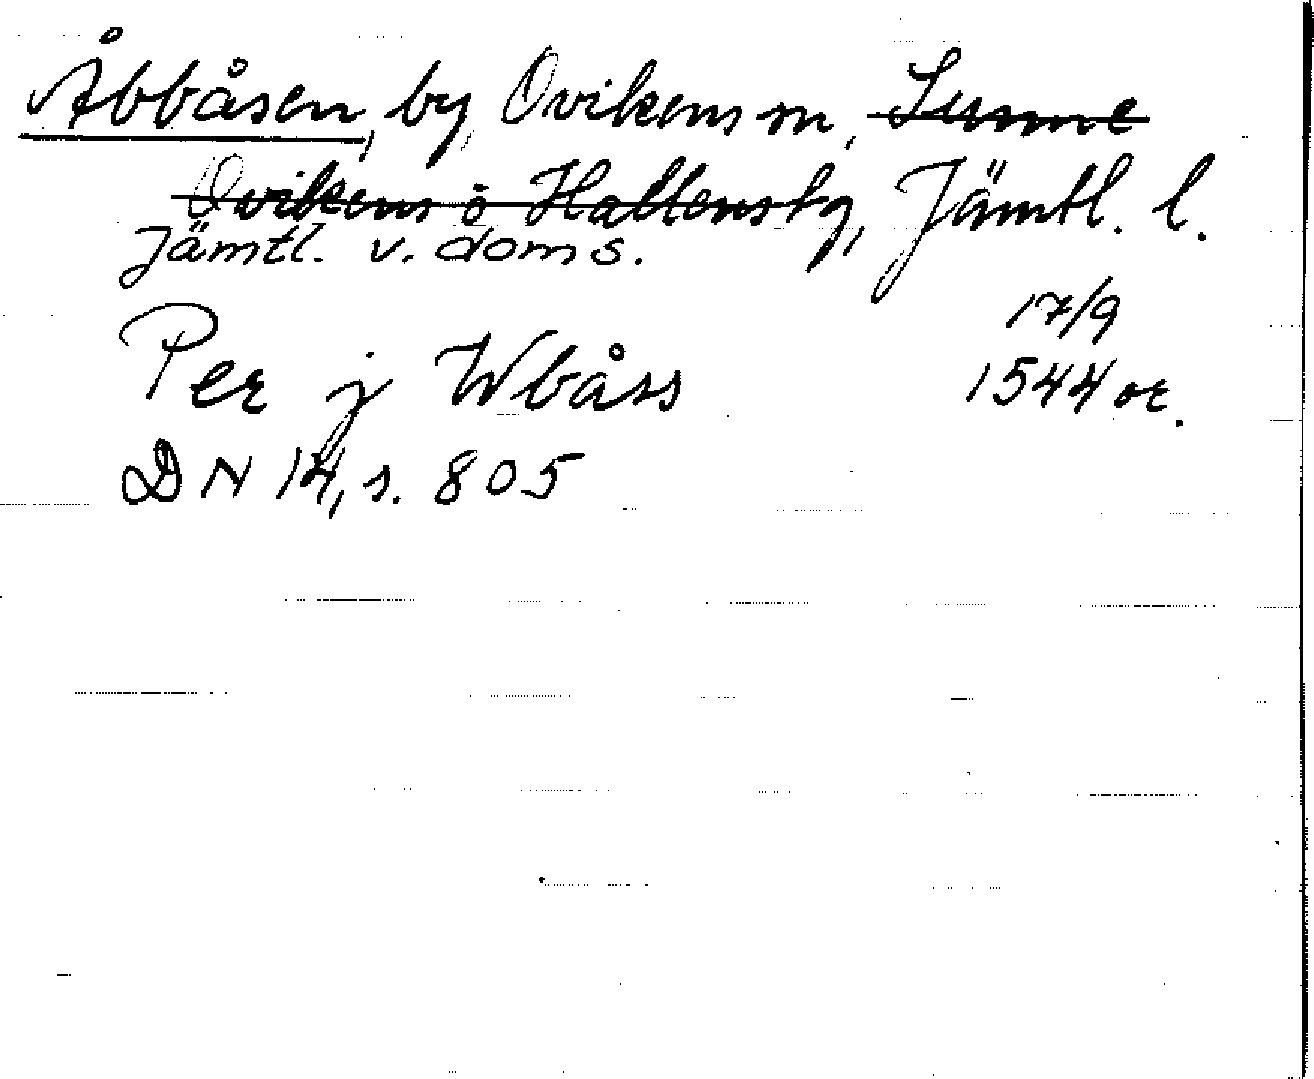 Åbbåsen, by, Ovikens sn, Sunne
Ovikens o Hallens tg, Jämtl. l.
Jämtl. v. doms.
17/9
Per j Wbåss 1544 or.
DN 14, s. 805